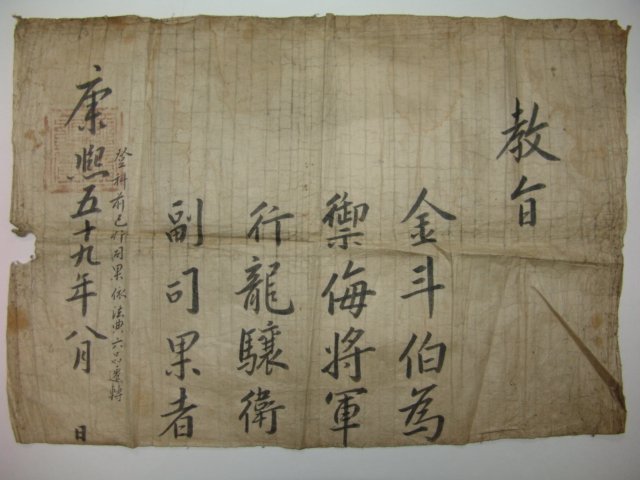 教旨
金斗伯為
禦侮將軍
行龍驤衛
副司果者
康熙五十九年八月 日
登科前已行司果依法典六品遷轉